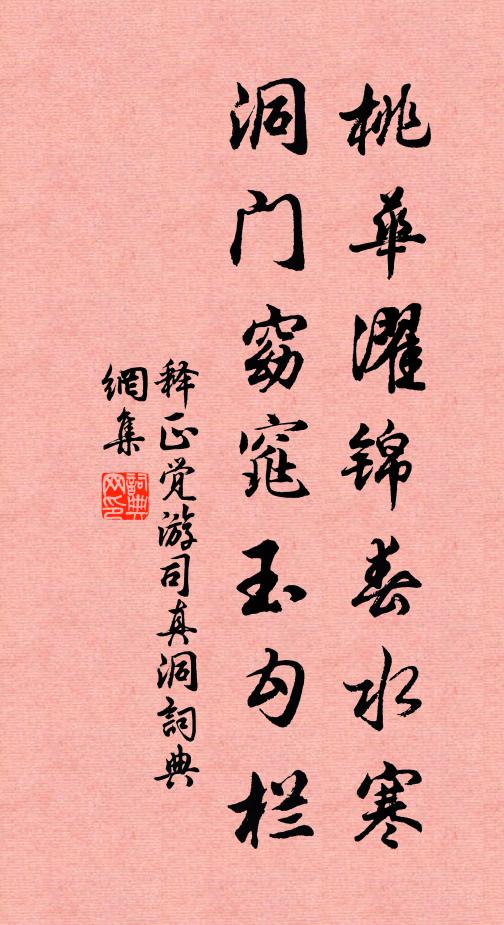 桃华濯锦春水寒
洞门窈窕玉勾栏
释正觉游司真洞詞典
網集
詞典
网印